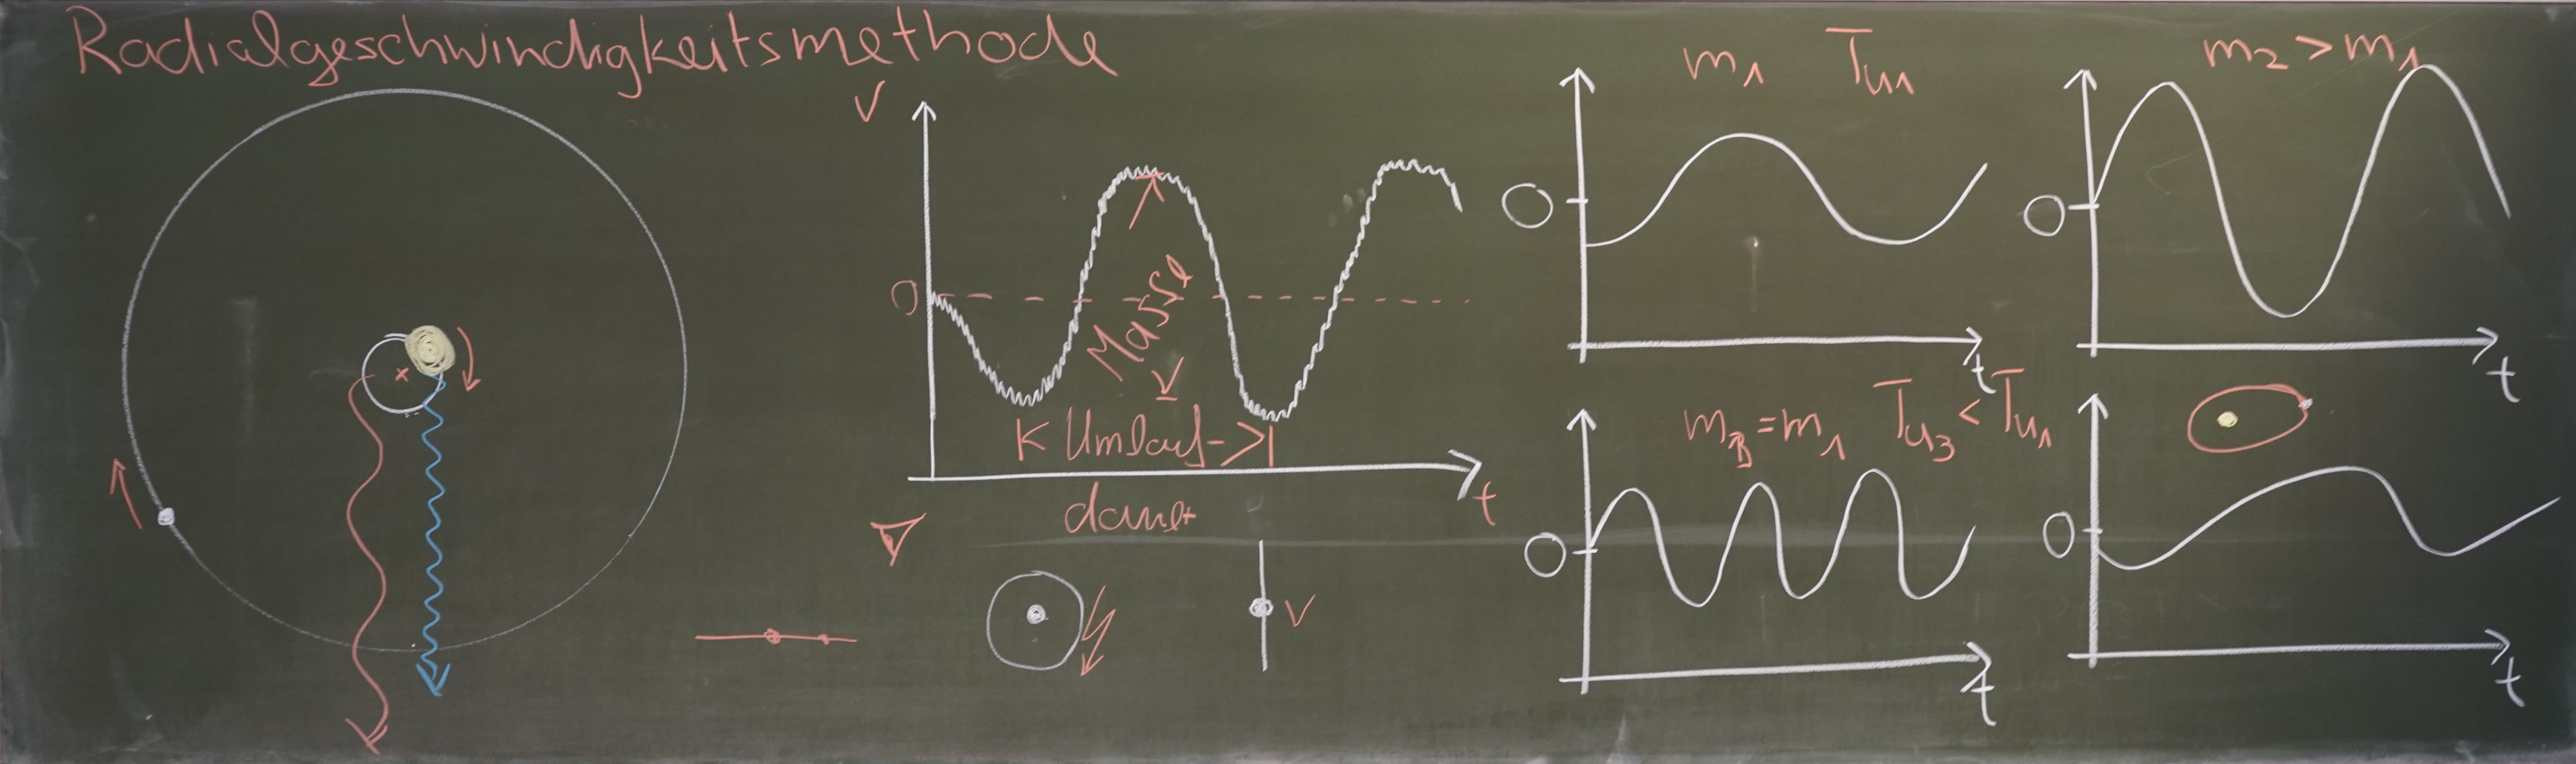 Radialgeschwindigkeitsmethode
v
0
Masse
K Umlauf->|
dauer
t
v
m1 Tu1
0
t
m2 > m1
0
t
m3 = m1 Tu3 < Tu1
0
t
0
t